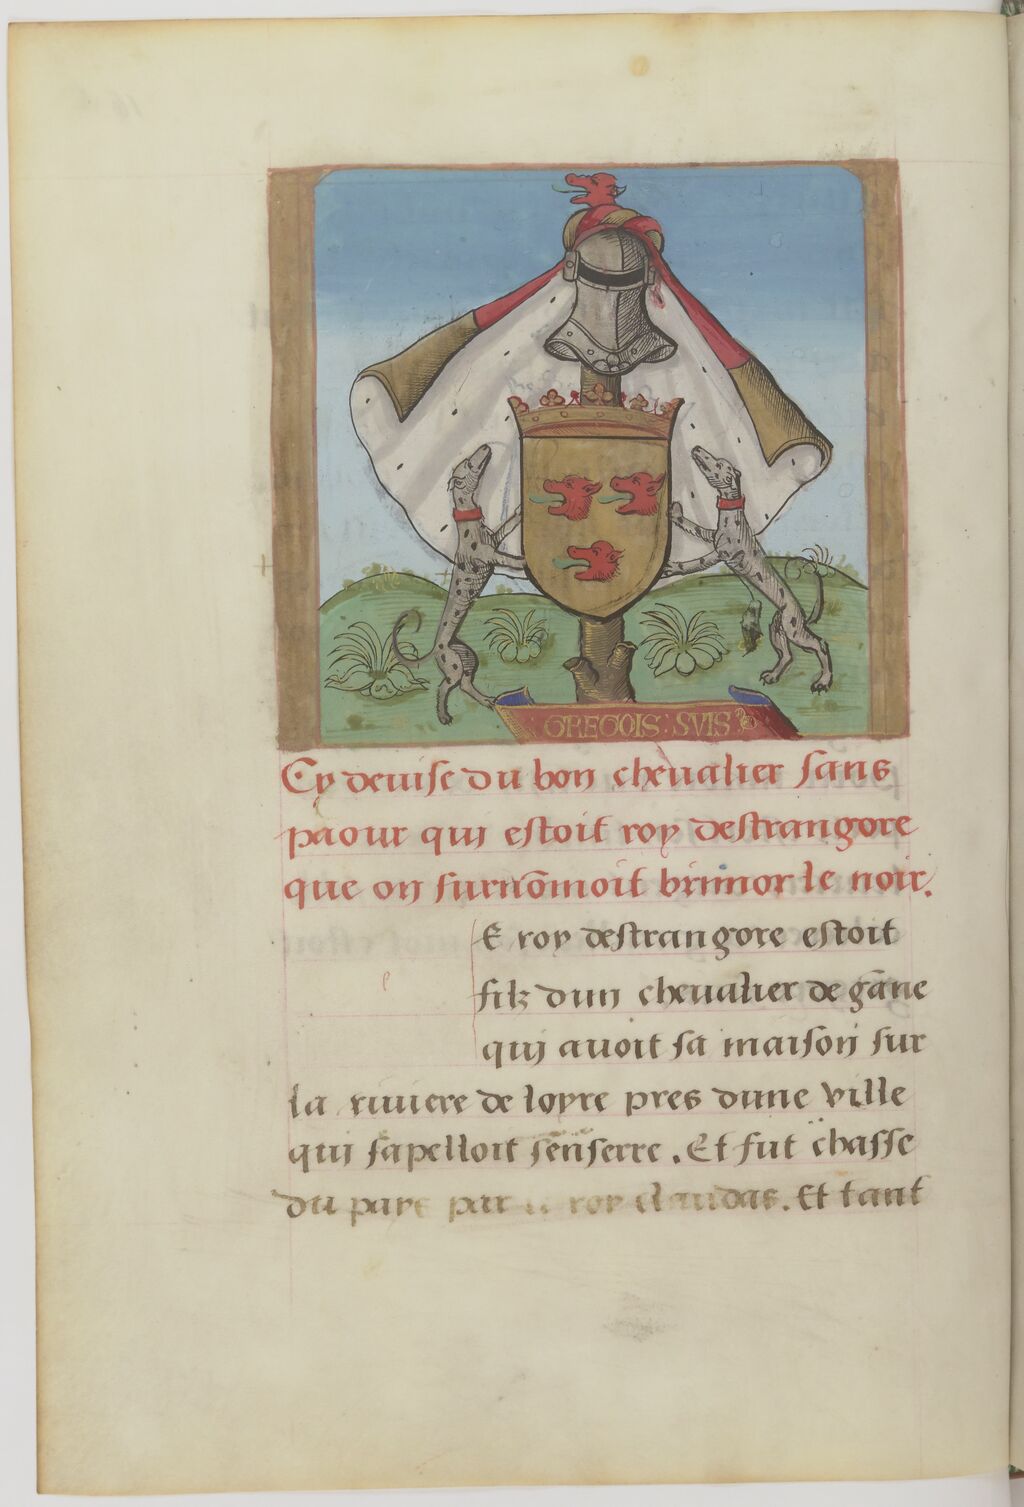 GREGOIS : SVIS
Cy deuise du bon cheualier sans
paour qui estoit roy destrangore
que on surnōmoit brunor le noir.
e
E roy destrangore estoit
filz dun cheualier de gāne
qui auoit sa maison sur
la riuiere de loyre pres dune ville
qui sapelloit senserre. Et fut chasse
du paye par le roy claudas. Et tant